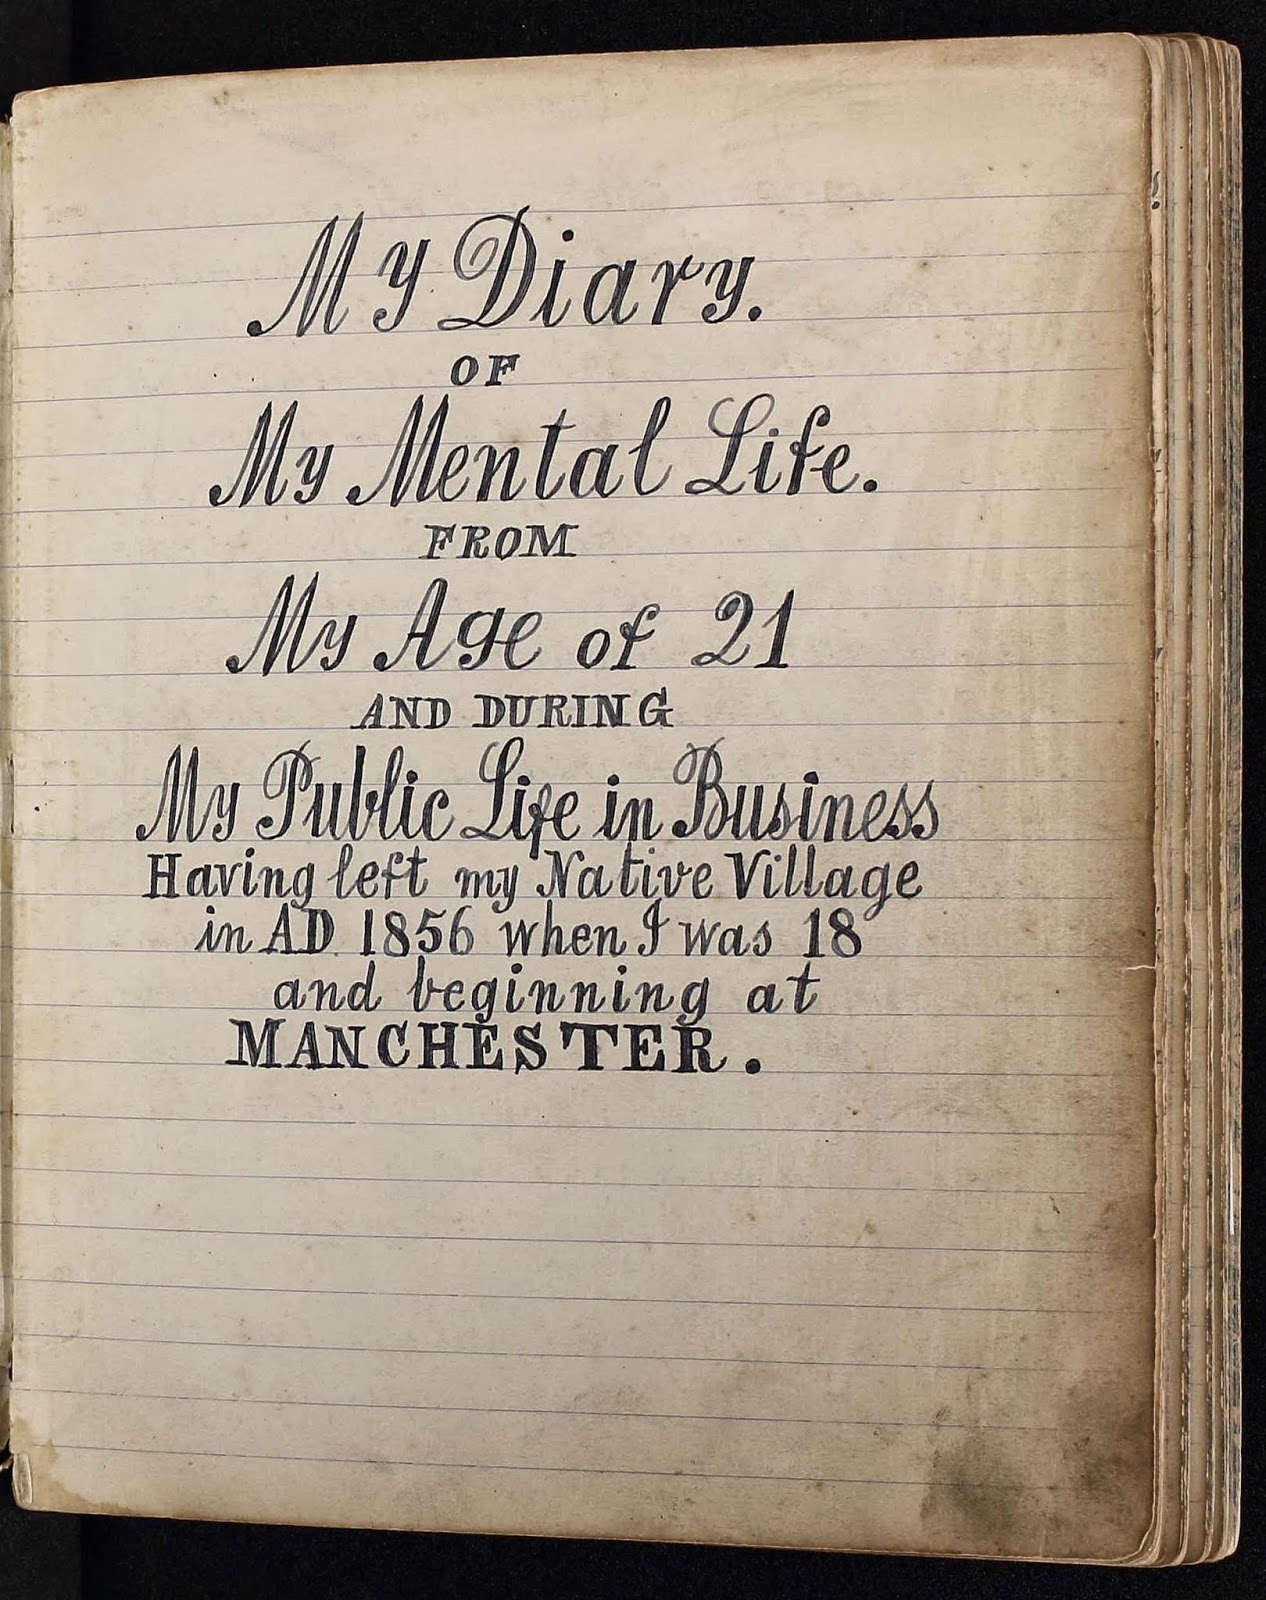 My Diary.
OF
My Mental Life.
FROM
My Age of 21
AND DURING
My Public Life in Business
Having left my Native Village
in AD. 1856 when I was 18
and beginning at
MANCHESTER.